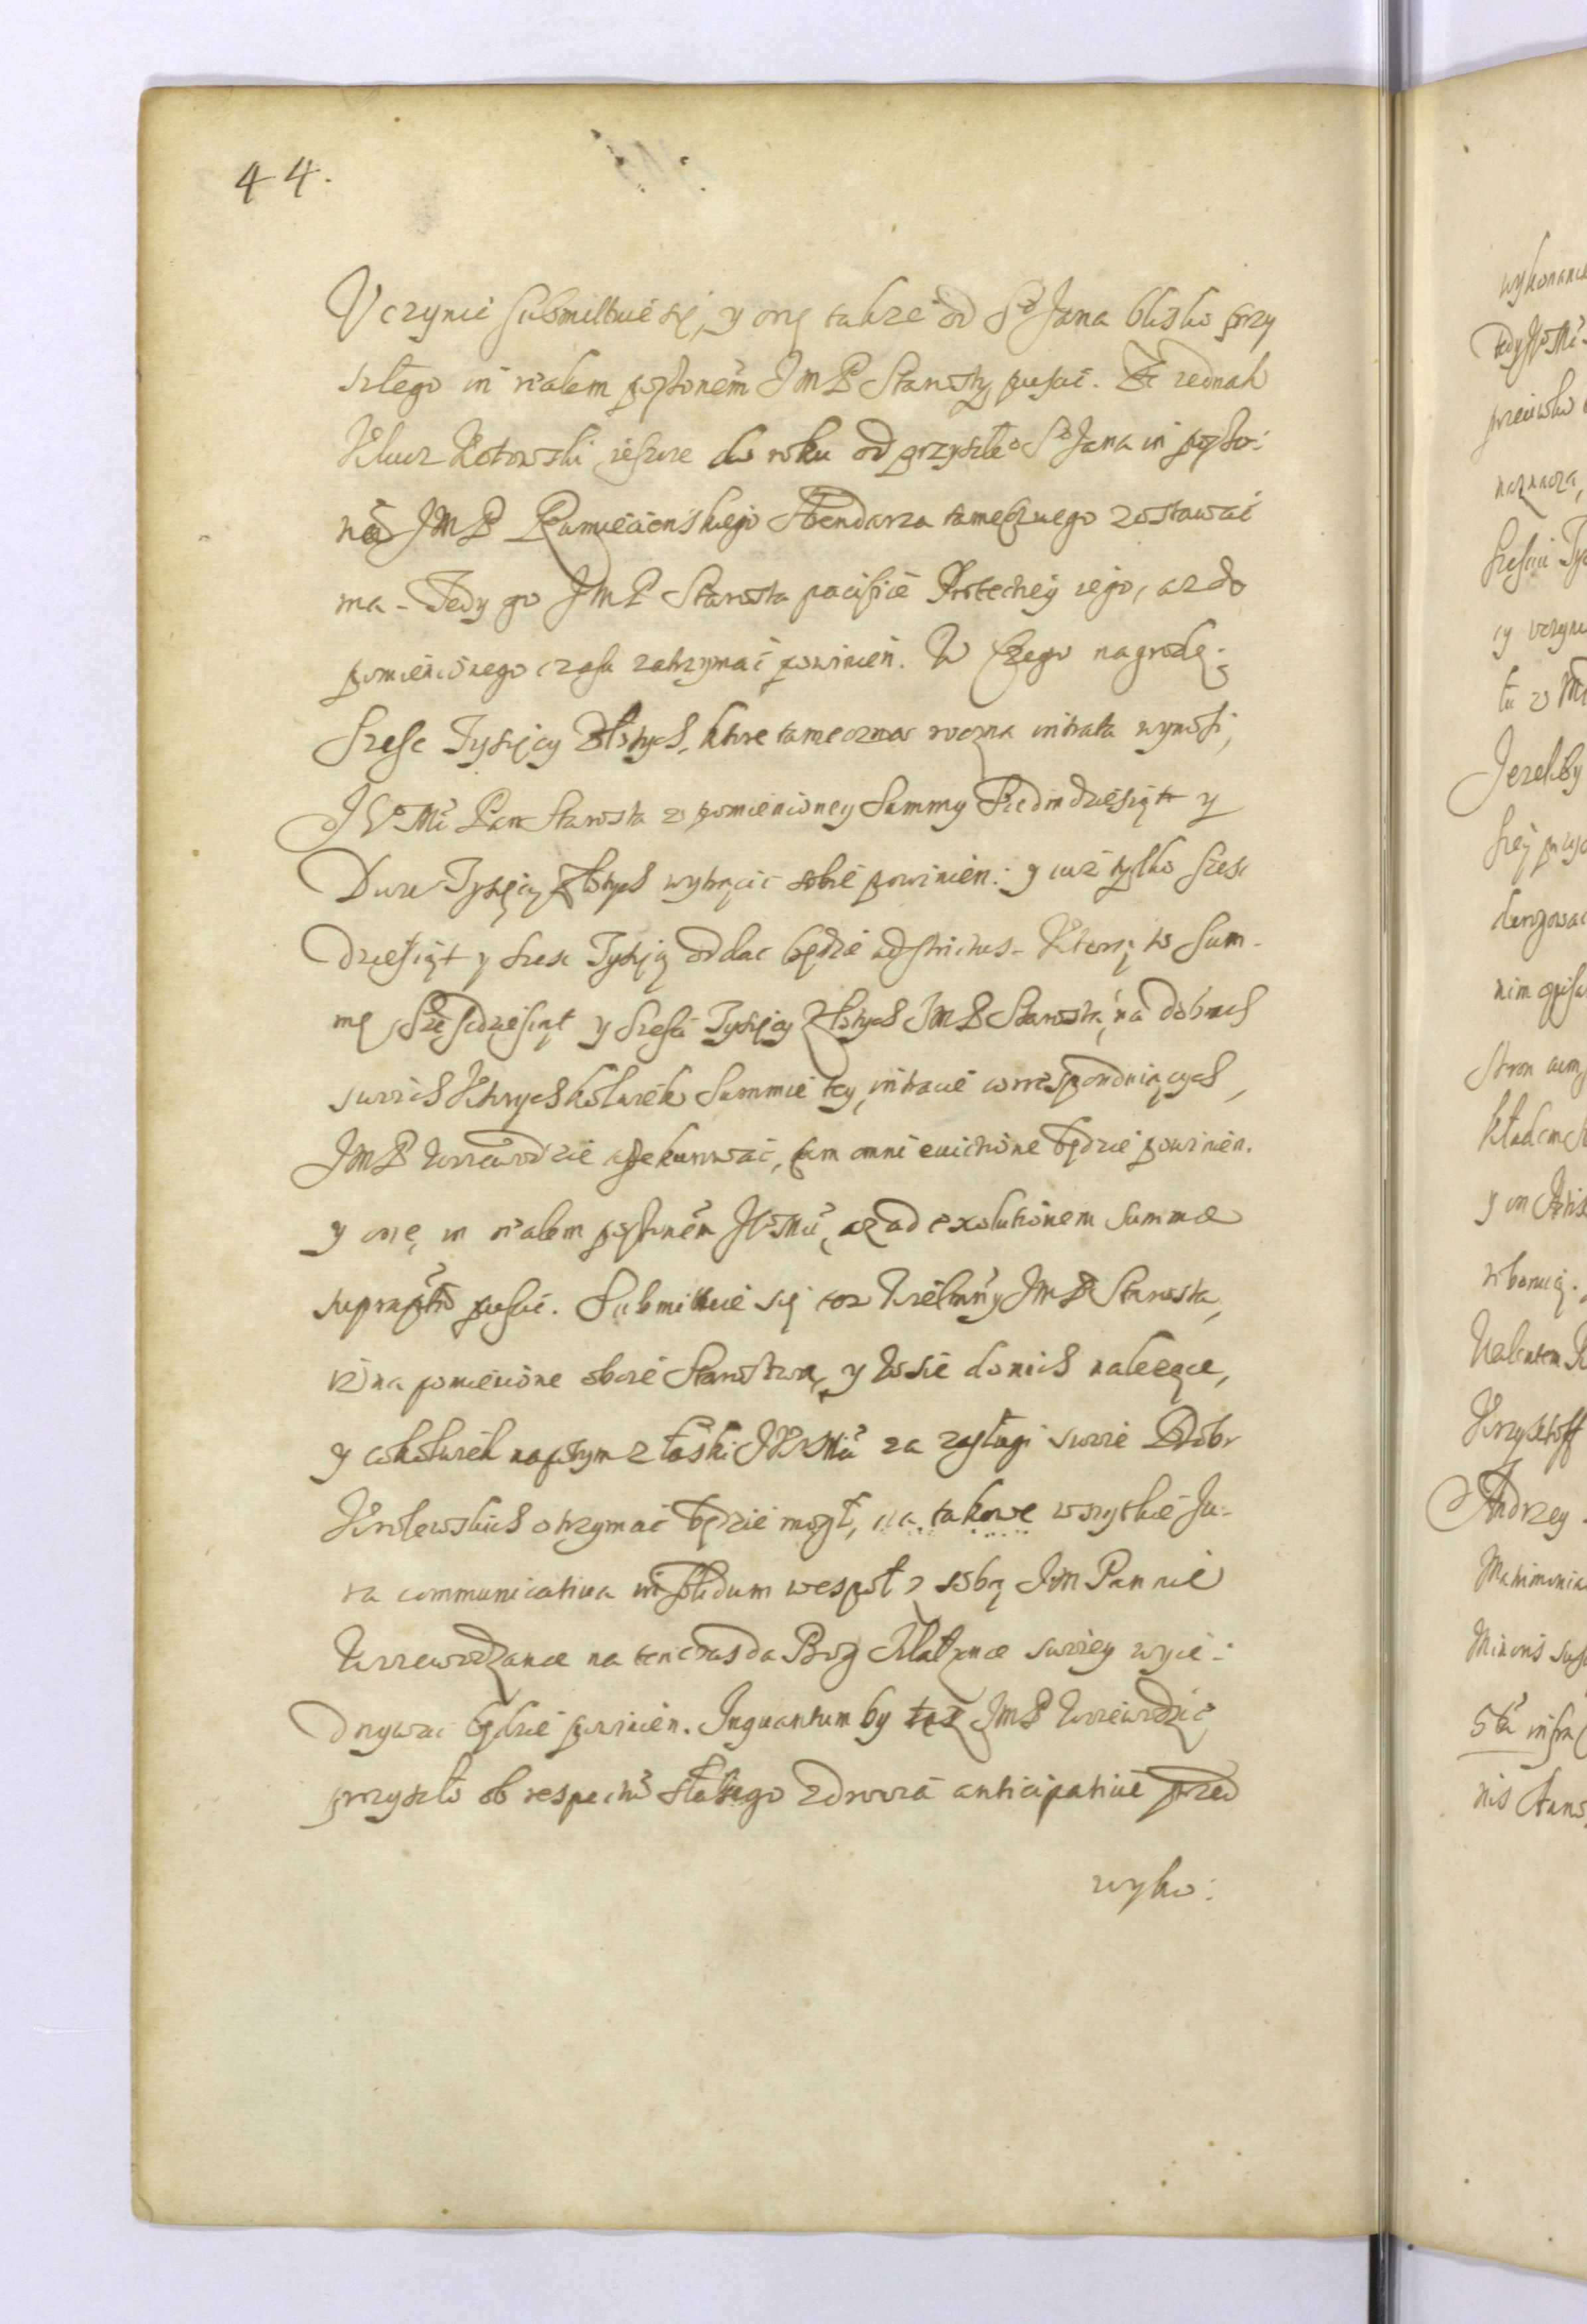 44.
Vczynić submittuie się, y onę także od S° Jana blisko przy
szłego in realem possionem JmP Starosty puścić. Że iednak
Klucz Kotowski ieszcze do roku od przyszłe° S° Jana in possio:
nē JMP Arendarza tamecznego zostawać
ma - Tedy go JMP Starosta pacifice Protechey iego, aż do
pomienionego czasu zatrzymać powinien. W czego nagrodę:
Szesc Tysięcy Złotych, ktore tameczna roczna intrata wynosi,
Pan Starosta z pomienioney Summy Siedmdziesiąt y
Dwu Tysięcy Złotych wytrącić sobie powinien: y iuż tylko szesc
dziesiąt y szesc Tysięcy oddac będzie adstrictus - Ktorą to Sum-
mę Szescdziesiąt y Szesci Tysięcy Złotych JMP Starosta, na dobrach
swoich Ktorychkolwiek Summie tey, intracie correspondniących,
JMP Wrzewodzie assekurować, cum omni euictione będzie powinien.
y onę, in realem possionem aż ad exolutionem summæ
supra puścić. Submittuie się toż Wielmny JMP Starosta,
iż na pomienione oboie Starostwa, y Wsie do nich należące,
y cokolwiek napotym z łaski JKMci za zasługi swoie Dobr
Krolewskich otrzymać będzie mogł, na takowe wszytkie Ju-
ra communicatiua in solidum wespoł z sobą JM Pannie
Wrzewodzance na ten czas da Bog Małżonce swoiey wyie-
dnywac będzie powinien. Inquantum by też JMP Wrzewodzic
przyszło ob respectū słabego zdrowia anticipatiue przed
wyko:

wykonanie
tedy
naznacza,
cy vczyni
Jezeliby
Walenten
Krzysztoff
Andrzey
Matrimonia
5ta infra